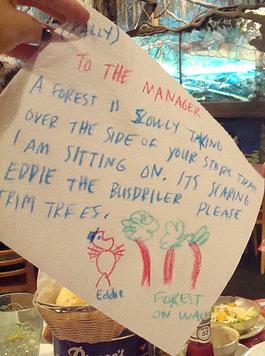 (REALLY)
TO THE MANAGER
A FOREST IS SLOWLY TAKING
OVER THE SIDE OF YOUR STORE THAT
I AM SITTING ON. ITS SCARING
EDDIE THE BUSDRILER PLEASE
TRIM TREES.
Eddie
FOREST
ON WALL